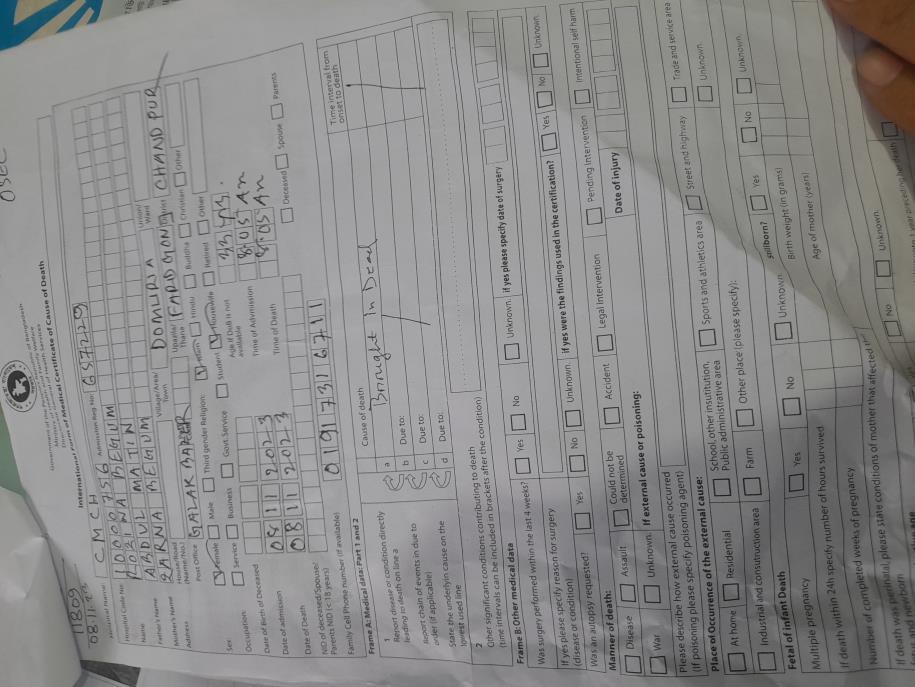 OSEC
11809
08.11.23
Government of the People's Republic of Bangladesh
Ministry of Health and Family Welfare
Directorate General of Health Services
International Form of Medical Certificate of Cause of Death
Hospital Name: CMCH Admission Reg No: 657229
Hospital Code No: 10000756
Name MORINA BEGUM
Father's Name ABDUL MATIN
Mother's Name BEGUM
Address House/Road Name/No. Village/Area/Town DOMURIA Union/Ward
Post Office Upazila/Thana FARIDGONJ District CHANDPUR
Sex: Female Male Third gender Religion: Islam Hindu Buddha Christian Other
Occupation: Service Business Govt. Service Student Housewife Retired Other
Date of Birth of Deceased Age if DoB is not available 33 yrs.
Date of admission 08 11 2023 Time of Admission 8:05 Am
Date of Death 08 11 2023 Time of Death 8:05 Am
NID of deceased/Spouse/Parents NID (<18 years) Deceased Spouse Parents
Family Cell Phone number (if available) 01917316711
Frame A: Medical data: Part 1 and 2
Cause of death Time interval from onset to death
1 Report disease or condition directly leading to death on line a
a Brought In Dead
Report chain of events in due to order (if applicable)
b Due to:
c Due to:
State the underlyin cause on the lowest used line
d Due to:
2 Other significant conditions contributing to death
(time intervals can be included in brackets after the condition)
Frame B: Other medical data
Was surgery performed within the last 4 weeks? Yes No Unknown. if yes please specify date of surgery
If yes please specify reason for surgery (disease or condition)
Was an autopsy requested? Yes No Unknown. If yes were the findings used in the certification? Yes No Unknown.
Manner of death:
Disease Assault Could not be determined Accident Legal Intervention Pending Intervention Intentional self harm
War Unknown.
If external cause or poisoning: Date of injury
Please describe how external cause occurred
(If poisoning please specify poisoning agent)
Place of Occurrence of the external cause:
At home Residential School, other institution, Public administrative area Sports and athletics area Street and highway Trade and service area
Industrial and construction area Farm Other place (please specify): Unknown.
Fetal of infant Death
Multiple pregnancy Yes No Unknown. Stillborn? Yes No Unknown.
If death within 24h specify number of hours survived Birth weight (in grams)
Number of completed weeks of pregnancy Age of mother (years)
If death was perinatal, please state conditions of mother that affected the
No Unknown.
No